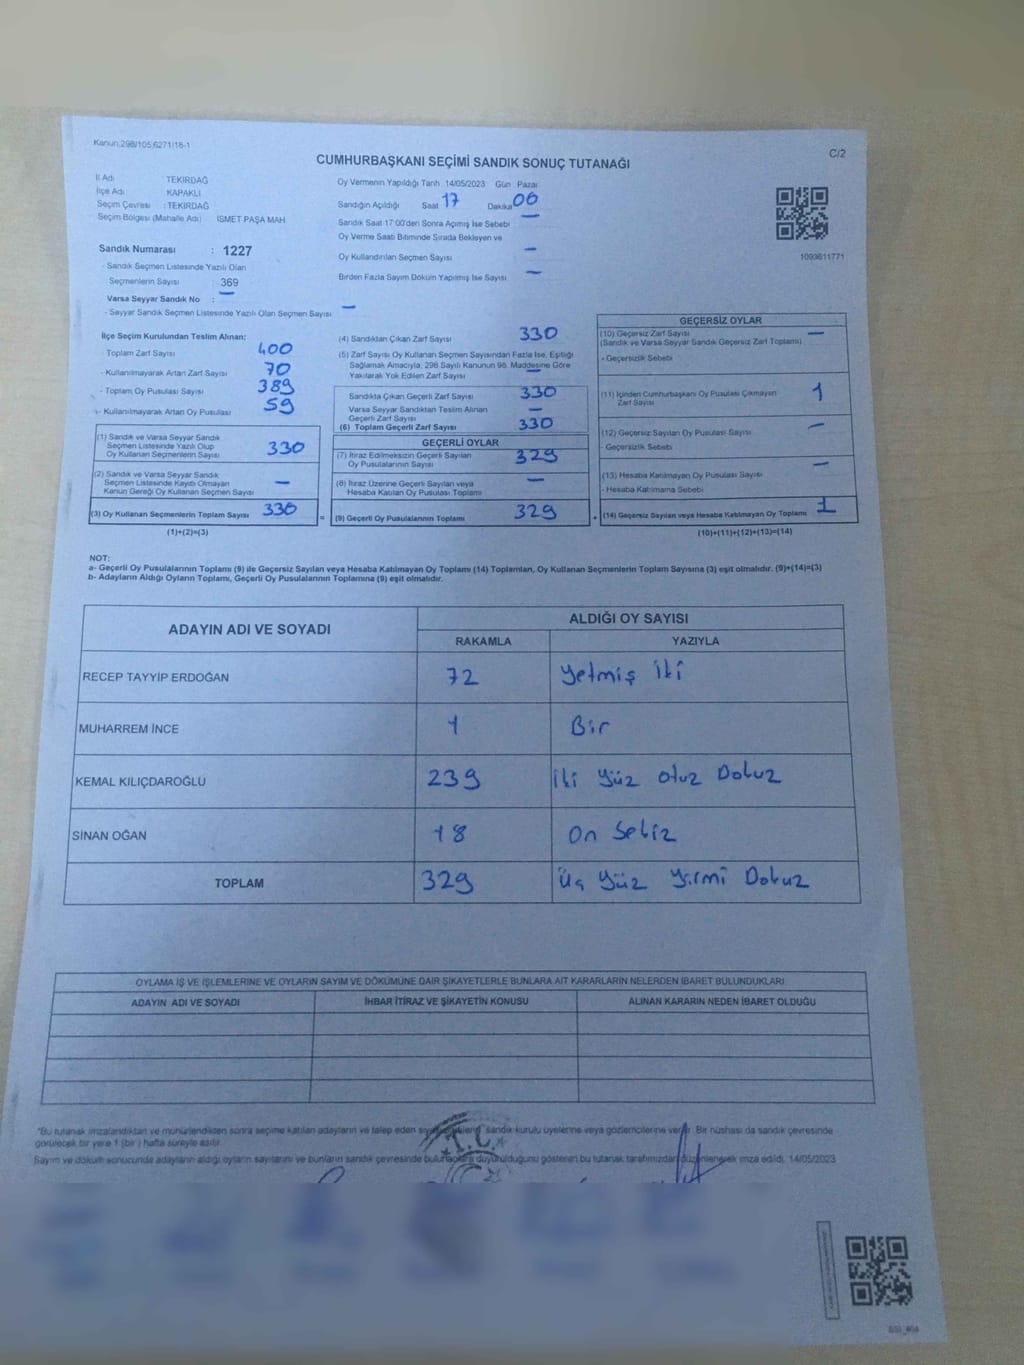 Kanun:298/105,6271/18-1
C/2
CUMHURBAŞKANI SEÇİMİ SANDIK SONUÇ TUTANAĞI
İl Adı TEKİRDAĞ
İlçe Adı KAPAKLI
Seçim Çevresi : TEKİRDAĞ
Seçim Bölgesi (Mahalle Adı) İSMET PAŞA MAH.
Sandık Numarası : 1227
- Sandık Seçmen Listesinde Yazılı Olan
Seçmenlerin Sayısı : 369
Varsa Seyyar Sandık No : —
- Seyyar Sandık Seçmen Listesinde Yazılı Olan Seçmen Sayısı : —
Oy Vermenin Yapıldığı Tarih : 14/05/2023 Gün : Pazar
Sandığın Açıldığı Saat 17 Dakika 06
Sandık Saat 17:00'den Sonra Açılmış İse Sebebi —
Oy Verme Saati Bitiminde Sırada Bekleyen ve
Oy Kullandırılan Seçmen Sayısı —
Birden Fazla Sayım Döküm Yapılmış İse Sayısı —
1093611771
İlçe Seçim Kurulundan Teslim Alınan:
- Toplam Zarf Sayısı 400
- Kullanılmayarak Artan Zarf Sayısı 70
- Toplam Oy Pusulası Sayısı 389
- Kullanılmayarak Artan Oy Pusulası 59
(1) Sandık ve Varsa Seyyar Sandık
Seçmen Listesinde Yazılı Olup
Oy Kullanan Seçmenlerin Sayısı 330
(2) Sandık ve Varsa Seyyar Sandık
Seçmen Listesinde Kayıtlı Olmayan
Kanun Gereği Oy Kullanan Seçmen Sayısı —
(3) Oy Kullanan Seçmenlerin Toplam Sayısı 330
(1)+(2)=(3)
(4) Sandıktan Çıkan Zarf Sayısı 330
(5) Zarf Sayısı Oy Kullanan Seçmen Sayısından Fazla İse, Eşitliği
Sağlamak Amacıyla, 298 Sayılı Kanunun 98. Maddesine Göre
Yakılarak Yok Edilen Zarf Sayısı —
Sandıkta Çıkan Geçerli Zarf Sayısı 330
Varsa Seyyar Sandıktan Teslim Alınan
Geçerli Zarf Sayısı —
(6) Toplam Geçerli Zarf Sayısı 330
GEÇERLİ OYLAR
(7) İtiraz Edilmeksizin Geçerli Sayılan
Oy Pusulalarının Sayısı 329
(8) İtiraz Üzerine Geçerli Sayılan veya
Hesaba Katılan Oy Pusulası Toplamı —
= (9) Geçerli Oy Pusulalarının Toplamı 329
GEÇERSİZ OYLAR
(10) Geçersiz Zarf Sayısı —
(Sandık ve Varsa Seyyar Sandık Geçersiz Zarf Toplamı)
- Geçersizlik Sebebi
(11) İçinden Cumhurbaşkanı Oy Pusulası Çıkmayan
Zarf Sayısı 1
(12) Geçersiz Sayılan Oy Pusulası Sayısı —
- Geçersizlik Sebebi
(13) Hesaba Katılmayan Oy Pusulası Sayısı —
- Hesaba Katılmama Sebebi
+ (14) Geçersiz Sayılan veya Hesaba Katılmayan Oy Toplamı 1
(10)+(11)+(12)+(13)=(14)
NOT:
a- Geçerli Oy Pusulalarının Toplamı (9) ile Geçersiz Sayılan veya Hesaba Katılmayan Oy Toplamı (14) Toplamları, Oy Kullanan Seçmenlerin Toplam Sayısına (3) eşit olmalıdır. (9)+(14)=(3)
b- Adayların Aldığı Oyların Toplamı, Geçerli Oy Pusulalarının Toplamına (9) eşit olmalıdır.
ADAYIN ADI VE SOYADI ALDIĞI OY SAYISI
RAKAMLA YAZIYLA
RECEP TAYYİP ERDOĞAN 72 Yetmiş İki
MUHARREM İNCE 1 Bir
KEMAL KILIÇDAROĞLU 239 İki Yüz Otuz Dokuz
SİNAN OĞAN 18 On Sekiz
TOPLAM 329 Üç Yüz Yirmi Dokuz
OYLAMA İŞ VE İŞLEMLERİNE VE OYLARIN SAYIM VE DÖKÜMÜNE DAİR ŞİKAYETLERLE BUNLARA AİT KARARLARIN NELERDEN İBARET BULUNDUKLARI
ADAYIN ADI VE SOYADI İHBAR İTİRAZ VE ŞİKAYETİN KONUSU ALINAN KARARIN NEDEN İBARET OLDUĞU
"Bu tutanak imzalandıktan ve mühürlendikten sonra seçime katılan adayların ve talep eden sandık kurulu üyelerine veya gözlemcilerine verilir. Bir nüshası da sandık çevresinde
görülecek bir yere 1 (bir) hafta süreyle asılır.
Sayım ve döküm sonucunda adayların aldığı oyların sayılarını ve bunların sandık çevresinde duyurulduğunu gösteren bu tutanak tarafımızdan düzenlenerek imza edildi. 14/05/2023
T.C.